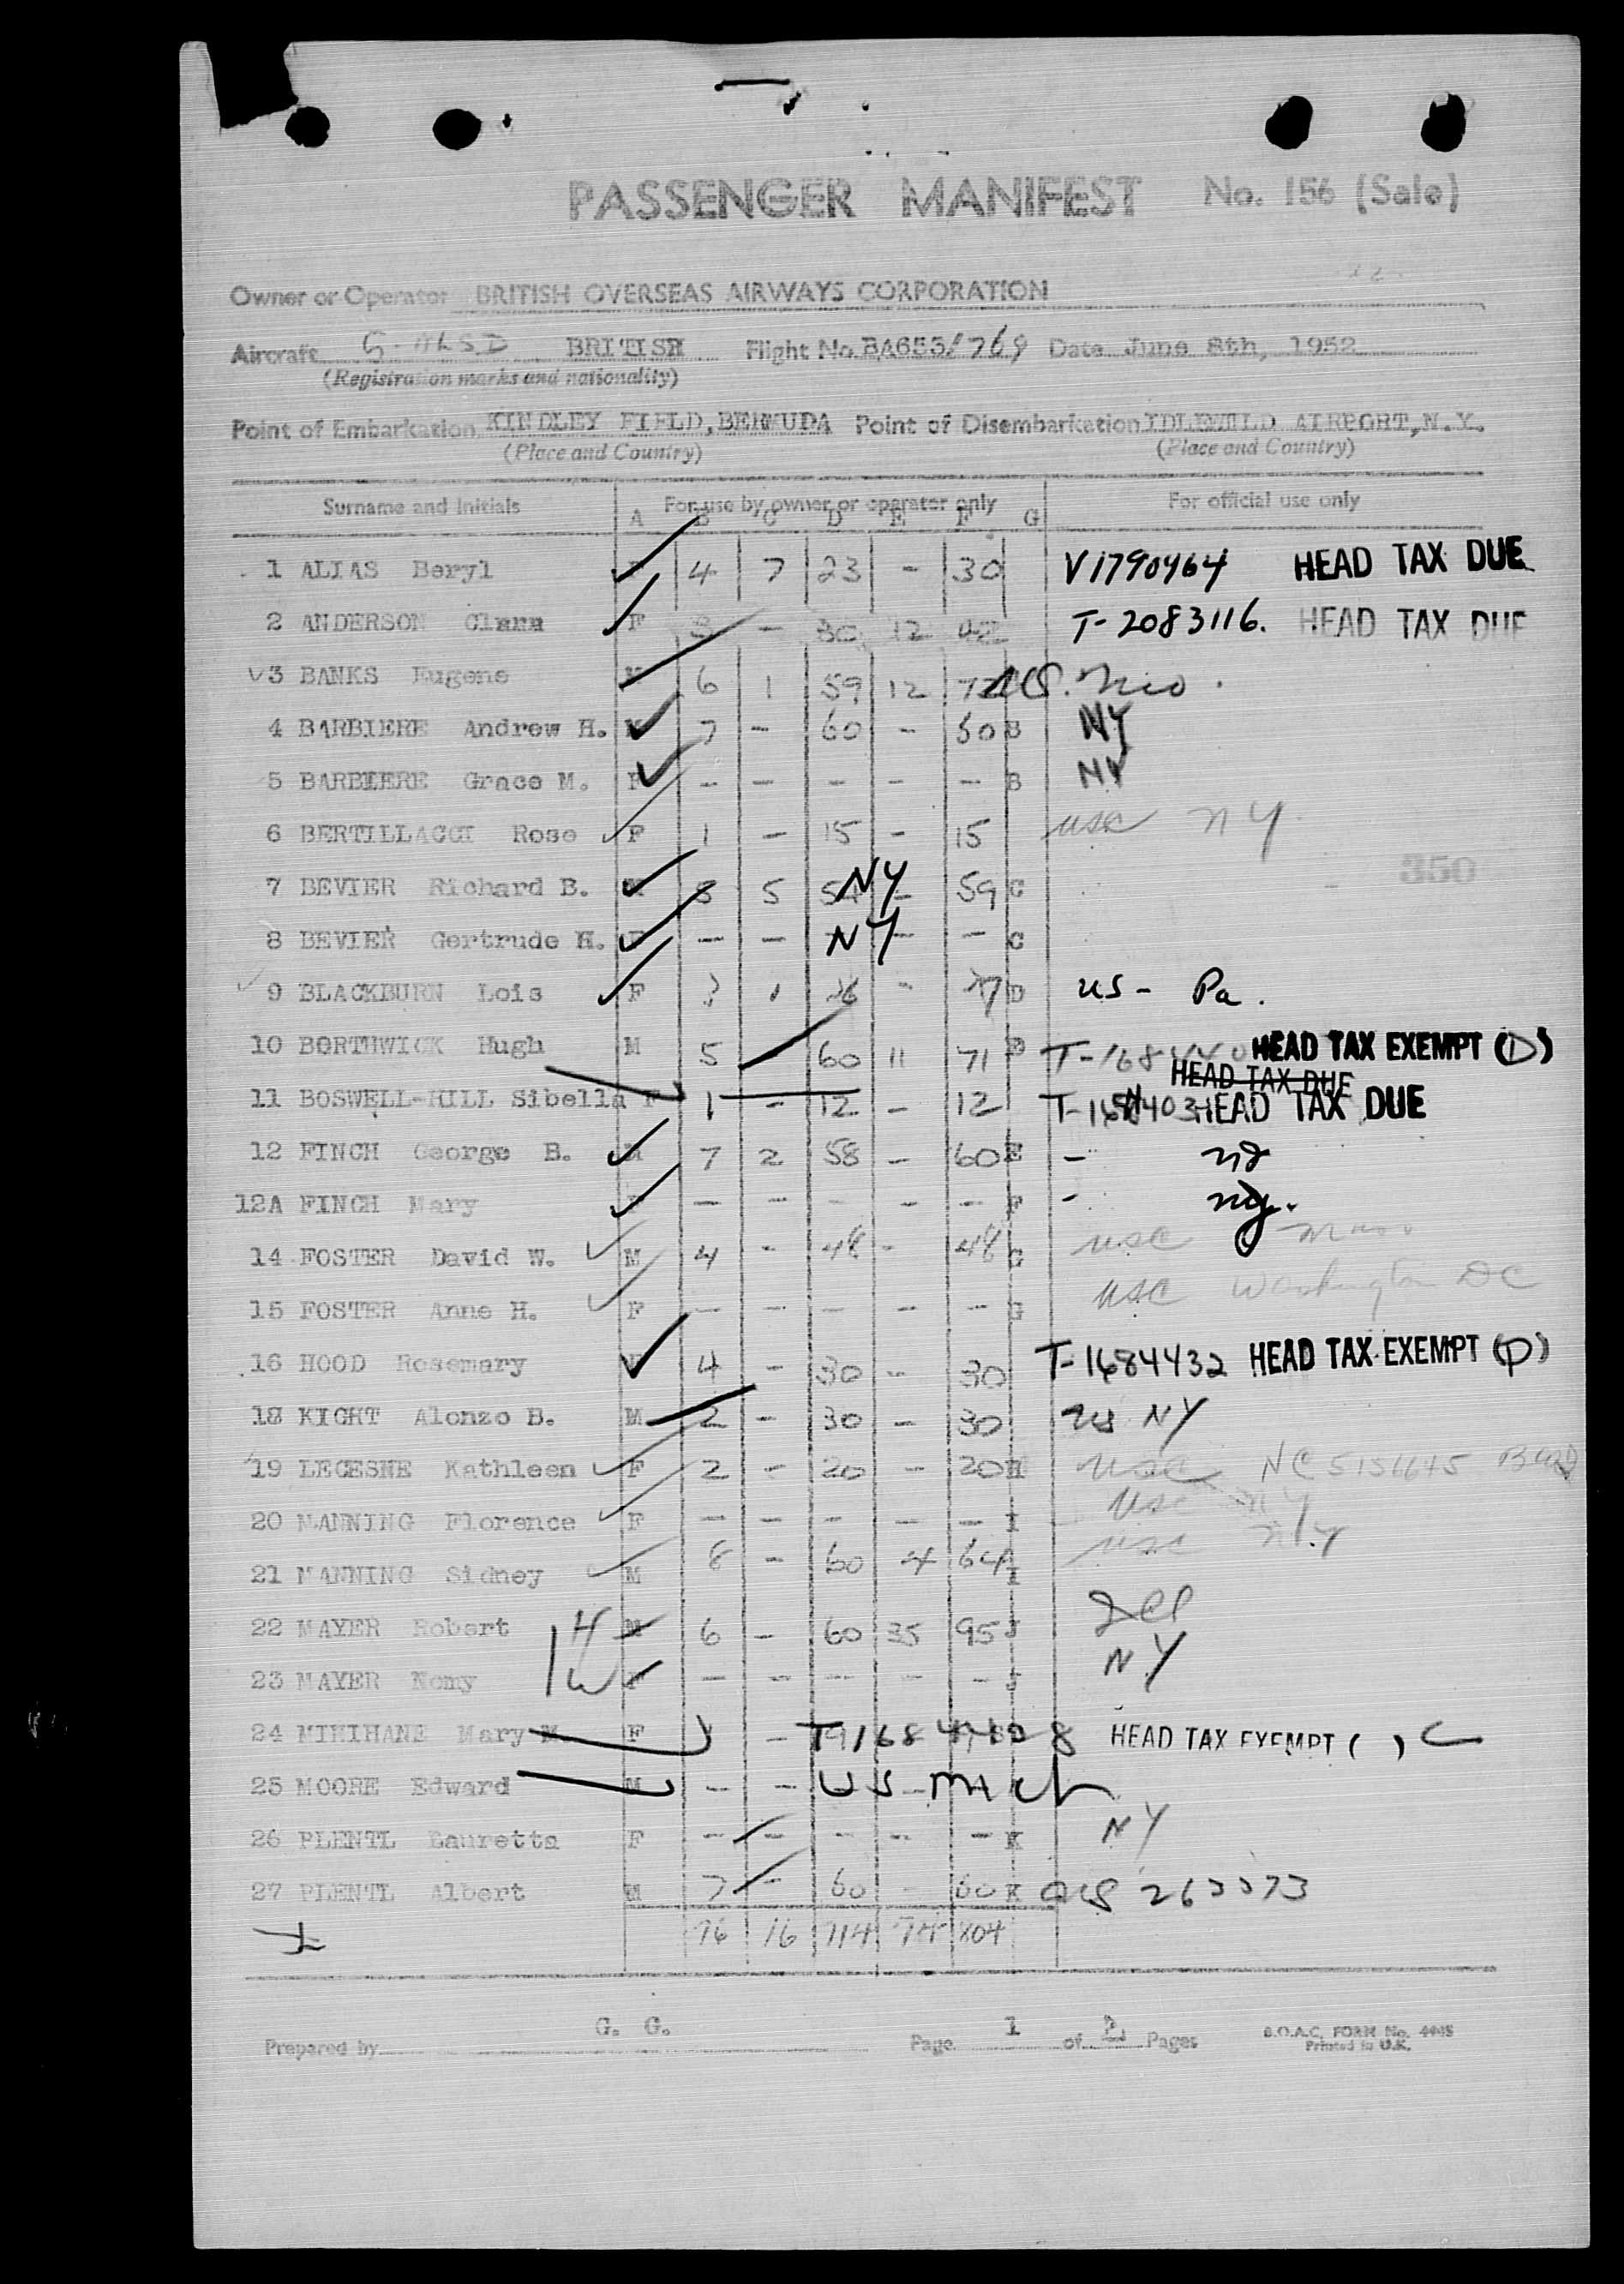 PASSENGER MANIFEST No. 156 (Sale)
Owner or Operator BRITISH OVERSEAS AIRWAYS CORPORATION
Aircraft BRITISH Flight No. BA653/769 Date June 8th, 1952
(Registration marks and nationality)
Point of Embarkation KINDLEY FIELD, BERMUDA Point of Disembarkation IDLEWILD AIRPORT, N.Y.
(Place and Country) (Place and Country)
Surname and Initials For use by owner or operator only For official use only
A B C D E F G
1 ALIAS Beryl F 4 7 23 - 30 V1790464 HEAD TAX DUE
2 ANDERSON Clara F 3 - 30 12 42 T-2083116. HEAD TAX DUE
3 BANKS Eugene M 6 1 59 12 72
4 BARBIERE Andrew H. M 7 - 60 - 60 B NY
5 BARBIERE Grace M. F - - - - - B NY
6 BERTILLACCI Rose F 1 - 15 - 15 usc NY
350
7 BEVIER Richard B. M 5 54 NY - 59 C
8 BEVIER Gertrude H. F - - NY - - C
9 BLACKBURN Lois F 1 26 - D US - Pa.
10 BORTHWICK Hugh M 5 60 11 71 HEAD TAX EXEMPT (D)
HEAD TAX DUE
11 BOSWELL-HILL Sibella F 1 - 12 - 12 HEAD TAX DUE
12 FINCH George B. M 7 2 58 - 60 E -
12A FINCH Mary F - - - - - F - ny.
14 FOSTER David W. M 4 - 48 - 48 G usc
15 FOSTER Anne H. F - - - - - G usc Washington DC
16 HOOD Rosemary F 4 - 30 - 30 T-1684432 HEAD TAX EXEMPT (D)
18 KIGHT Alonzo B. M 2 - 30 - 30 US NY
19 LECESNE Kathleen F 2 - 20 - 20 H usc NC 5151645
20 MANNING Florence F - - - - - I usc NY
21 MANNING Sidney M 8 - 60 4 64 I usc N.Y
22 MAYER Robert H M 6 - 60 35 95 J
23 MAYER Nomy W F - - - - - J NY
24 Mary M. F - HEAD TAX EXEMPT ( ) C
25 MOORE Edward M - - US Mich
26 PLENTL Lauretta F - - - - - K NY
27 PLENTL Albert M 7 - 60 - 60 K
76 16 714 74 804
Prepared by G. G. Page 1 of 2 Pages B.O.A.C. FORM No.
Printed in U.K.